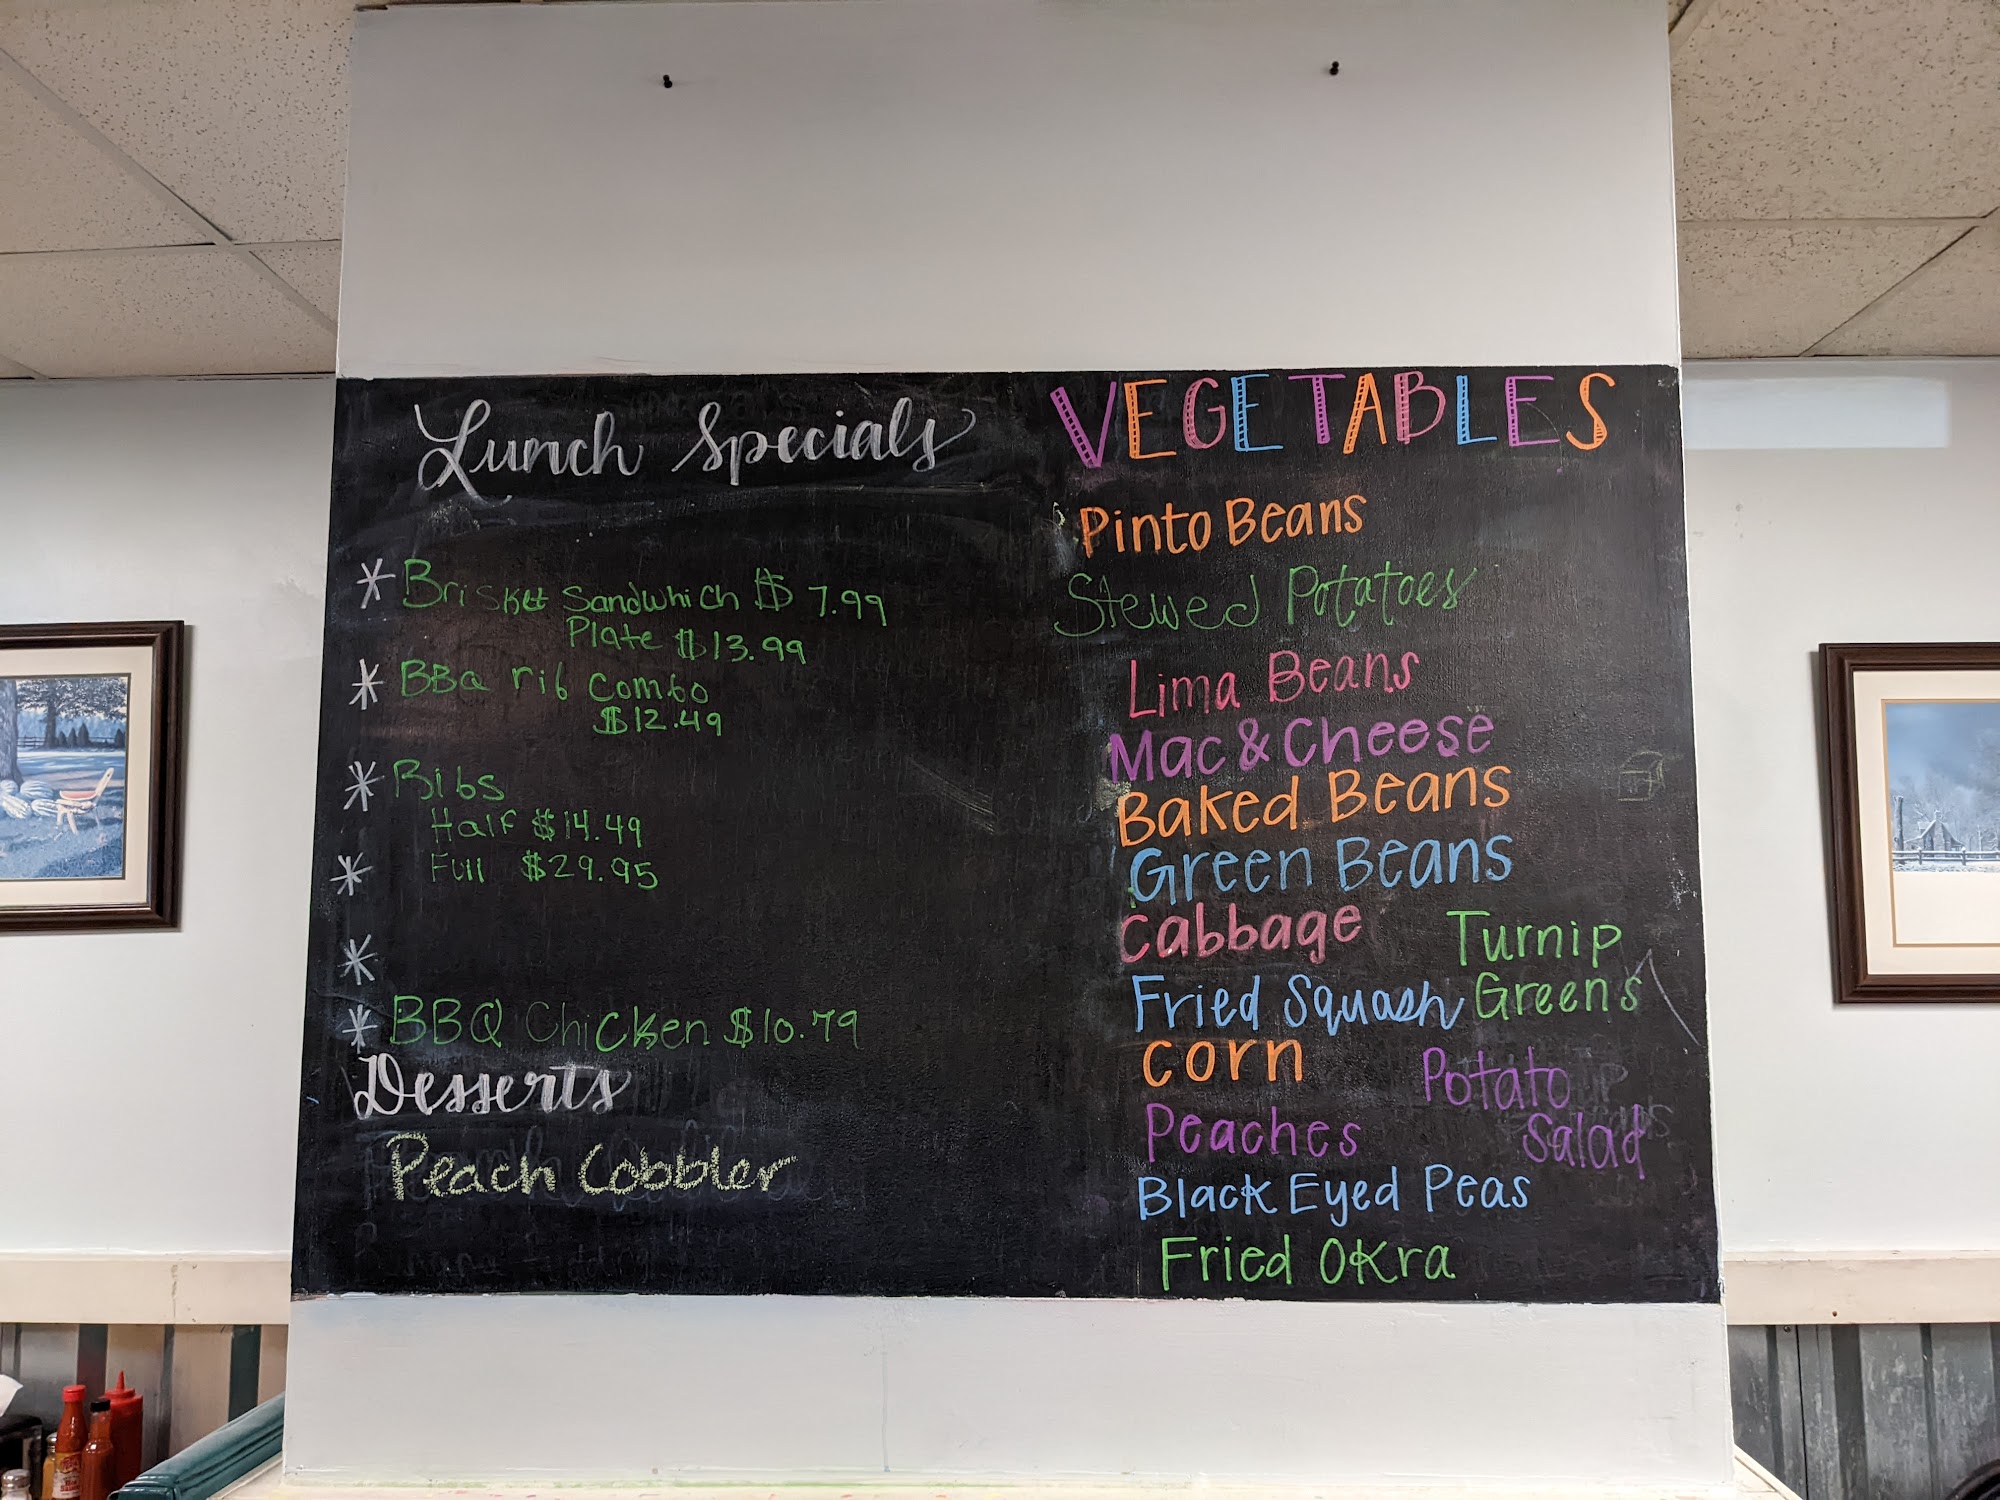 Lunch Specials
* Brisket Sandwhich $ 7.99
Plate $13.99
* BBQ rib combo
$12.49
* Ribs
Half $14.49
Full $29.95
*
*
* BBQ Chicken $10.79
Desserts
Peach Cobbler
VEGETABLES
Pinto Beans
Stewed Potatoes
Lima Beans
Mac & Cheese
Baked Beans
Green Beans
Cabbage
Turnip
Greens
Fried Squash
Corn
Potato
Salad
Peaches
Black Eyed Peas
Fried Okra